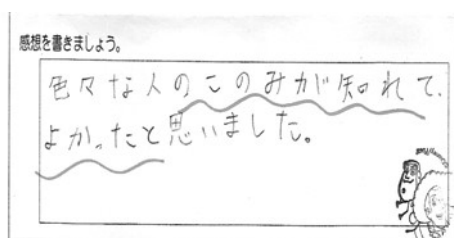 感想を書きましょう。
色々な人のこのみが知れて、
よかったと思いました。